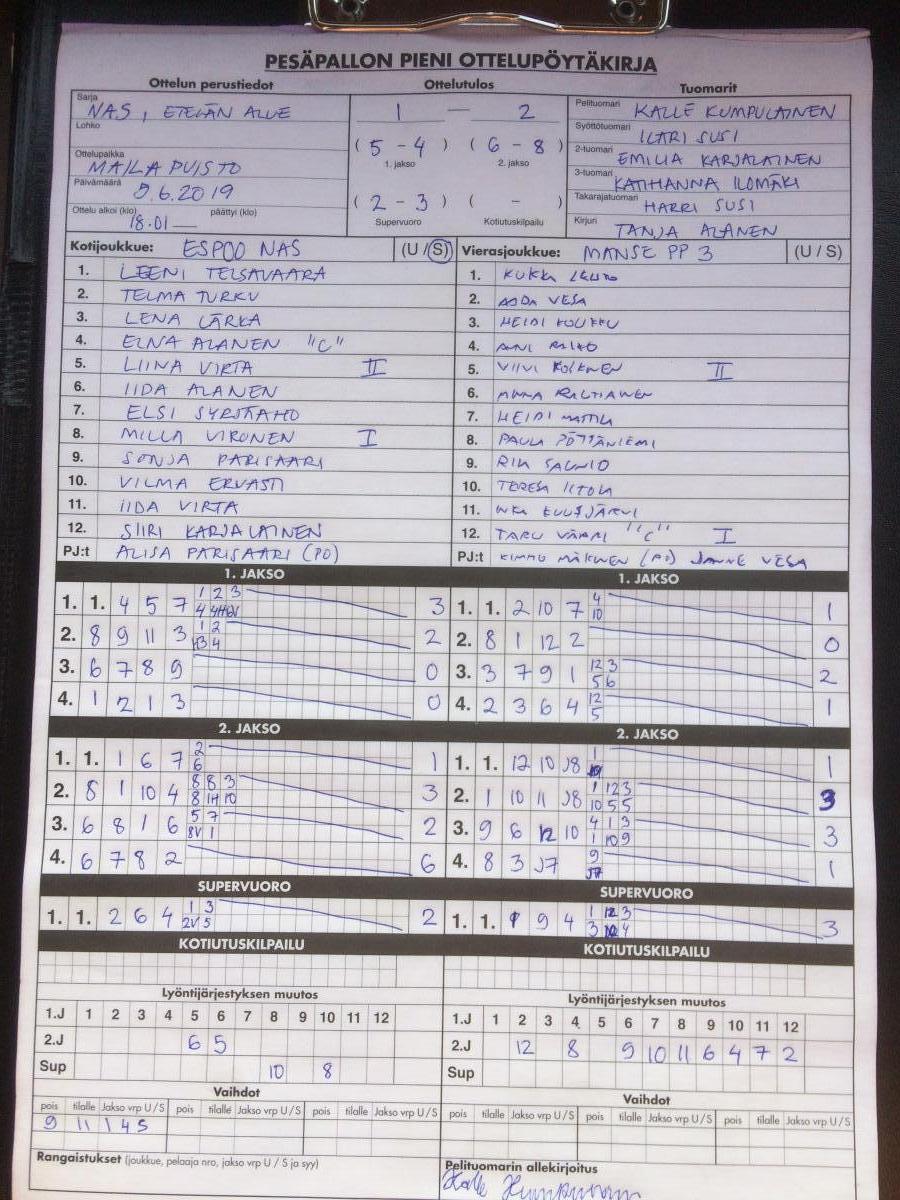 PESÄPALLON PIENI OTTELUPÖYTÄKIRJA
Ottelun perustiedot Ottelutulos Tuomarit
Sarja NAS, ETELÄN ALUE
Lohko
Ottelupaikka MAILA PUISTO
Päivämäärä 9.6.2019
Ottelu alkoi (klo) 18.01 päättyi (klo)
1 — 2
( 5 - 4 ) ( 6 - 8 )
1. jakso 2. jakso
( 2 - 3 ) ( - )
Supervuoro Kotiutuskilpailu
Pelituomari KALLE KUMPULAINEN
Syöttötuomari ILARI SUSI
2-tuomari EMILIA KARJALAINEN
3-tuomari KATIHANNA ILOMÄKI
Takarajatuomari HARRI SUSI
Kirjuri TANJA ALANEN
Kotijoukkue: ESPOO NAS (U / S)
1. LEENI TELSAVAARA
2. TELMA TURKU
3. LENA LÄRKA
4. ELNA ALANEN "C"
5. LIINA VIRTA II
6. IIDA ALANEN
7. ELSI
8. MILLA VIRONEN I
9. SONJA PARISAARI
10. VILMA ERVASTI
11. IIDA VIRTA
12. SIIRI KARJALAINEN
PJ:t ALISA PARISAARI (PO)
Vierasjoukkue: MANSE PP 3 (U / S)
1. KUKKA
2. VESA
3. HEIDI
4. ANNI
5. VIIVI II
6. ANNA
7. HEIDI MATTILA
8. PAULA PÖTTÄNIEMI
9. SAUNIO
10. TERESA
11. KUUSJÄRVI
12. TARU "C" I
PJ:t KIMMO (PJ) JANNE VESA
1. JAKSO
1. 1. 4 5 7 1 2 3 3
2. 8 9 11 3 1 2 2
3. 6 7 8 9 0
4. 1 2 1 3 0
1. JAKSO
1. 1. 2 10 7 4 1
10
2. 8 1 12 2 0
3. 3 7 9 1 12 3 2
5 6
4. 2 3 6 4 12 1
5
2. JAKSO
1. 1. 1 6 7 2 1
6
2. 8 1 10 4 8 8 3 3
8 1H 10
3. 6 8 1 6 5 7 2
8V 1
4. 6 7 8 2 6
2. JAKSO
1. 1. 12 10 J8 1 1
2. 1 10 11 J8 1 12 3 3
10 5 5
3. 9 6 12 10 4 1 3 3
1 10 9
4. 8 3 J7 9 1
J7
SUPERVUORO
1. 1. 2 6 4 1 3 2
2V 5
SUPERVUORO
1. 1. 9 4 1 12 3 3
3 4
KOTIUTUSKILPAILU
KOTIUTUSKILPAILU
Lyöntijärjestyksen muutos
1.J 1 2 3 4 5 6 7 8 9 10 11 12
2.J 6 5
Sup 10 8
Lyöntijärjestyksen muutos
1.J 1 2 3 4 5 6 7 8 9 10 11 12
2.J 12 8 9 10 11 6 4 7 2
Sup
Vaihdot
pois tilalle Jakso vrp U / S pois tilalle Jakso vrp U / S pois tilalle Jakso vrp U / S
9 11 1 4 S
Vaihdot
pois tilalle Jakso vrp U / S pois tilalle Jakso vrp U / S pois tilalle Jakso vrp U / S
Rangaistukset (joukkue, pelaaja nro, jakso vrp U / S ja syy)
Pelituomarin allekirjoitus